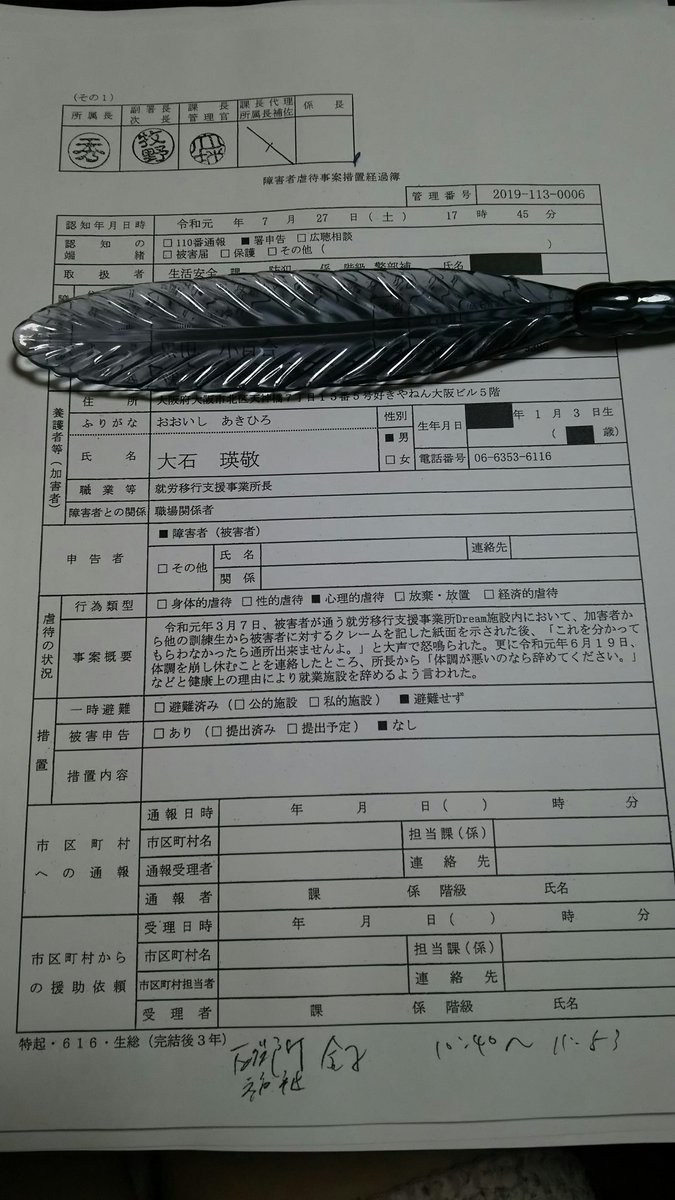 (その1)
所属長 副署長 次長 課長 管理官 課長代理 所属長補佐 係長
秀 牧野
障害者虐待事案措置経過簿
管理番号 2019-113-0006
認知年月日時 令和元 年 7 月 27 日(土) 17 時 45 分
認知の端緒 □110番通報 ■署申告 □広聴相談
□被害届 □保護 □その他( )
取扱者 生活安全 課 防犯 係 階級 警部補 氏名
住所 大阪府大阪市北区天神橋7丁目15番5号好きやねん大阪ビル5階
養護者等(加害者)
ふりがな おおいし あきひろ 性別 ■男 □女 生年月日 年 1 月 3 日生
( 歳)
氏名 大石 瑛敬 電話番号 06-6353-6116
職業等 就労移行支援事業所長
障害者との関係 職場関係者
申告者 ■障害者(被害者)
□その他 氏名 連絡先
関係
虐待の状況
行為類型 □身体的虐待 □性的虐待 ■心理的虐待 □放棄・放置 □経済的虐待
事案概要 令和元年3月7日、被害者が通う就労移行支援事業所Dream施設内において、加害者か
ら他の訓練生から被害者に対するクレームを記した紙面を示された後、「これを分かって
もらわなかったら通所出来ませんよ。」と大声で怒鳴られた。更に令和元年6月19日、
体調を崩し休むことを連絡したところ、所長から「体調が悪いのなら辞めてください。」
などと健康上の理由により就業施設を辞めるよう言われた。
措置
一時避難 □避難済み(□公的施設 □私的施設) ■避難せず
被害申告 □あり(□提出済み □提出予定) ■なし
措置内容
市区町村への通報
通報日時 年 月 日( ) 時 分
市区町村名 担当課(係)
通報受理者 連絡先
通報者 課 係 階級 氏名
市区町村からの援助依頼
受理日時 年 月 日( ) 時 分
市区町村名 担当課(係)
市区町村担当者 連絡先
受理者 課 係 階級 氏名
特起・616・生総(完結後3年)
10:40~11:53